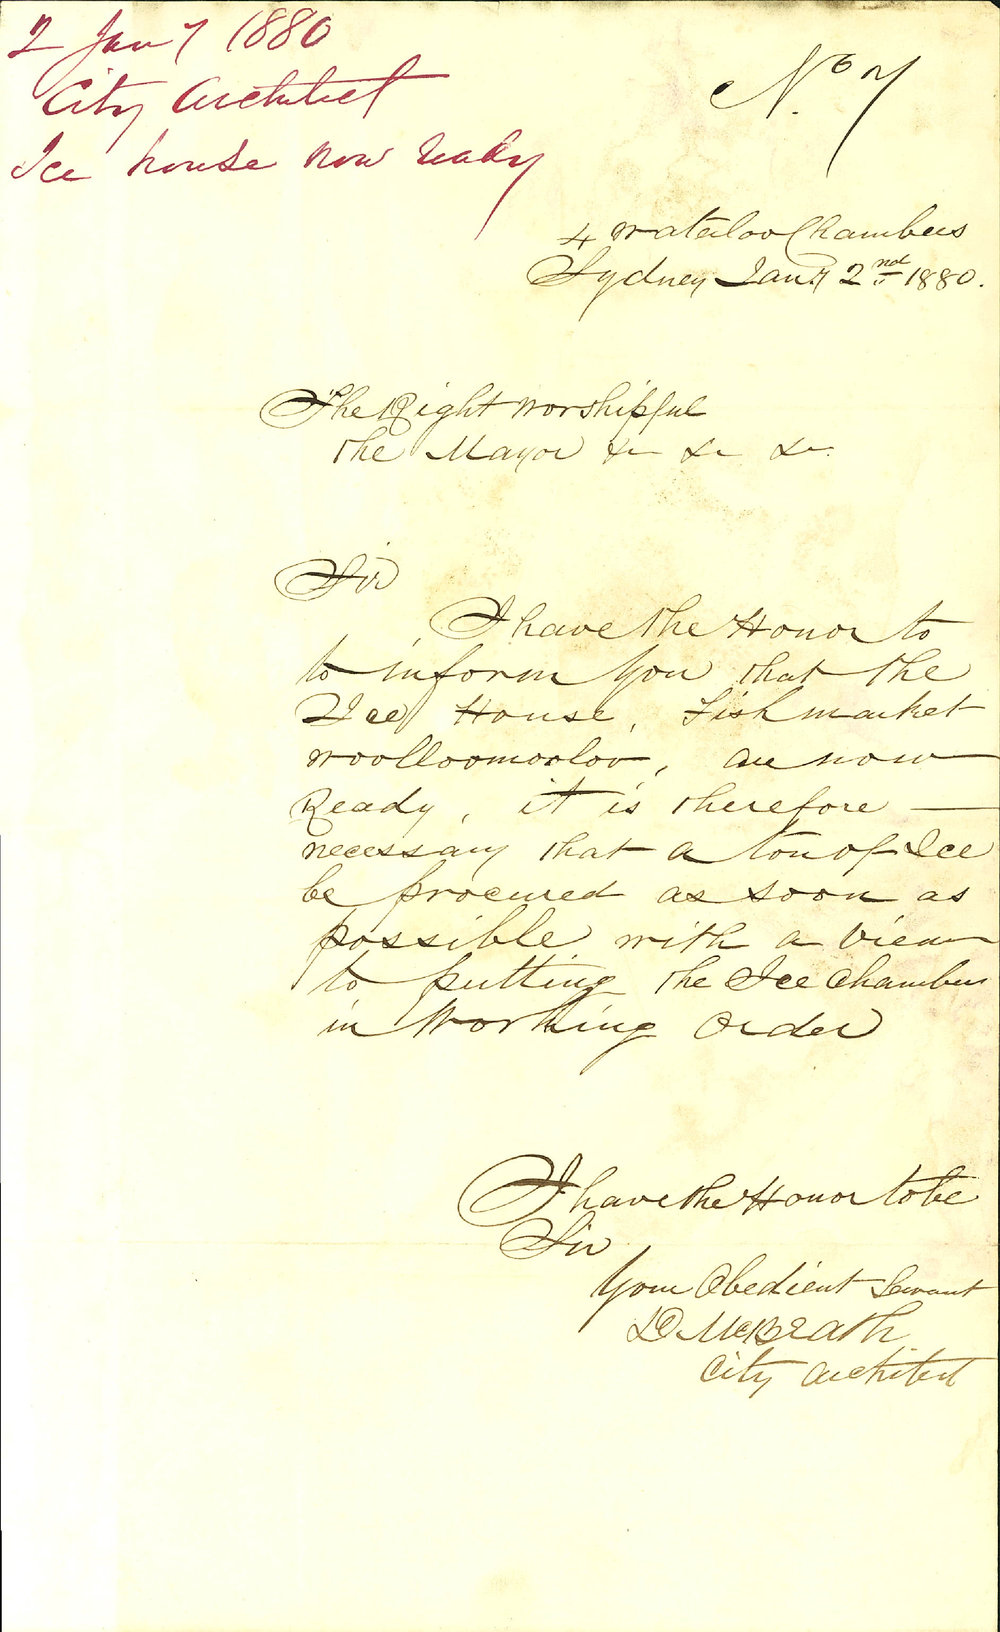 2 Jany 1880
City Architect
Ice house now ready
No 7
4 Waterloo Chambers
Sydney Jany 2nd 1880.
The Right Worshipful
the Mayor &c &c &c
Sir
I have the Honor to
to inform you that the
Ice House, Fishmarket
Woolloomooloo, are now
Ready, it is therefore —
necessary that a ton of Ice
be procured as soon as
possible with a view
to putting the Ice Chambers
in Working Order
I have the Honor to be
Sir
Your Obedient Servant
D McBeath
City Architect